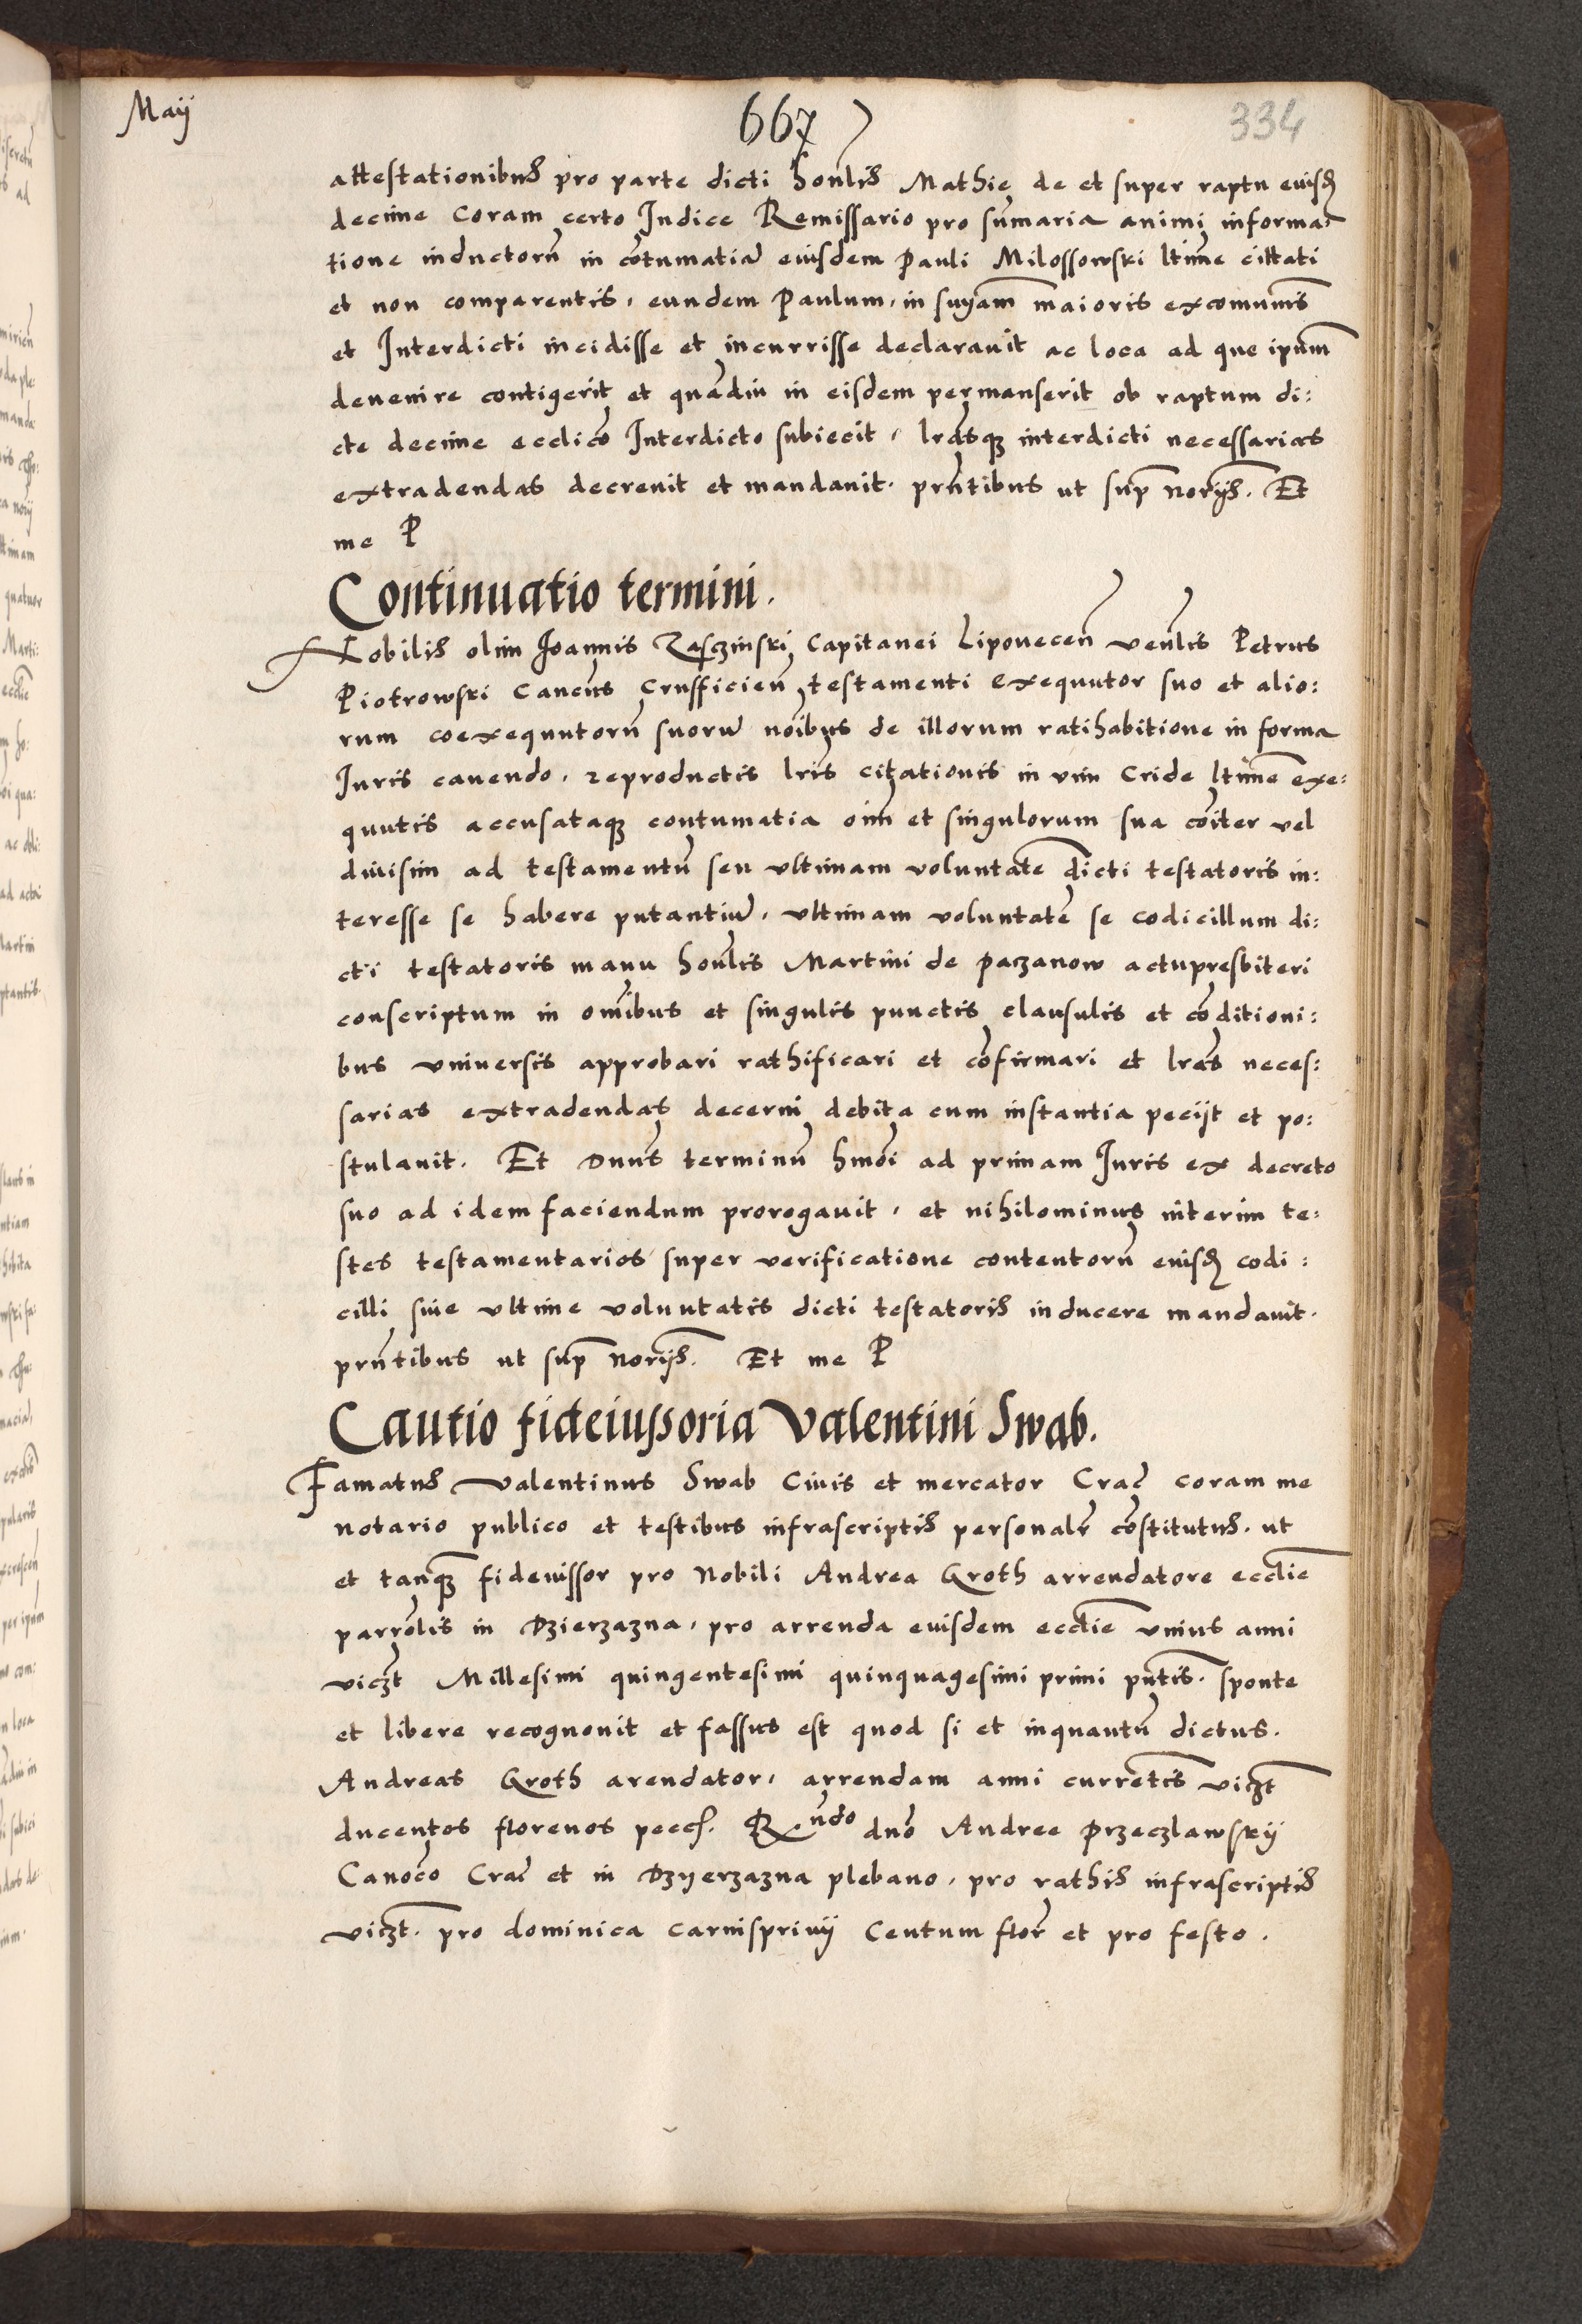 Maij
667
334
attestationibus pro parte dicti honlis Mathie de et super raptu eiusd
decime coram certo Iudice Remissario pro sumaria animi informa
tione inductoru in cotumatia eiusdem Pauli Milossowski ltime cittati
et non comparentis, eundem Paulum, in snyam maioris excomunis
et Interdicti incidisse et incurrisse declarauit ac loca ad que ipum
deuenire contigerit et quadiu in eisdem permanserit ob raptum di:
cte decime ecclico Interdicto subiecit, lrasq interdicti necessarias
extradendas decreuit et mandauit. prntibus ut sup norijs. Et
me P
Continuatio termini.
Nobilis olim Ioannis Zasczinski Capitanei Lipouecen venlis Petrus
Piotrowski Cancus Crusficien testamenti exequutor suo et alio:
rum coexequutoru suoru noibus de illorum ratihabitione in forma
Iuris cauendo, reproductis lris citationis in vim Cride ltime exe:
quutis accusataq contumatia oim et singulorum sua coiter vel
diuisim ad testamentu seu vltimam voluntate dicti testatoris in:
teresse se habere putantiu, vltimam voluntate se codicillum di:
cti testatoris manu honlis Martini de Paczanow actupresbiteri
conscriptum in omibus et singulis punctis clausulis et coditioni:
bus vniuersis approbari rathificari et cofirmari et lras neces:
sarias extradendas decerni debita cum instantia peciit et po:
stulauit. Et Dnus terminu hmoi ad primam Iuris ex decreto
suo ad idem faciendum prorogauit, et nihilominus interim te:
stes testamentarios super verificatione contentoru eiusd codi:
cilli siue vltime voluntatis dicti testatoris inducere mandauit.
prntibus ut sup norijs. Et me P
Cautio fideiussoria Valentini Swab.
Famatus Valentinus Swab Ciuis et mercator Crac coram me
notario publico et testibus infrascriptis personalr costitutus. ut
et tanq fideiussor pro Nobili Andrea Groth arrendatore ecclie
parrolis in Dzierzazna, pro arrenda eiusdem ecclie vnius anni
viczt Millesimi quingentesimi quinquagesimi primi pntis. sponte
et libere recognouit et fassus est quod si et inquantu dictus.
Andreas Groth arendator, arrendam anni curretis viczt
ducentos florenos pecc. Rndo dno Andree Przeczlawskij
Canoco Crac et in Dzyerzazna plebano, pro rathis infrascriptis
viczt. pro dominica carnispriuij Centum flor et pro festo.